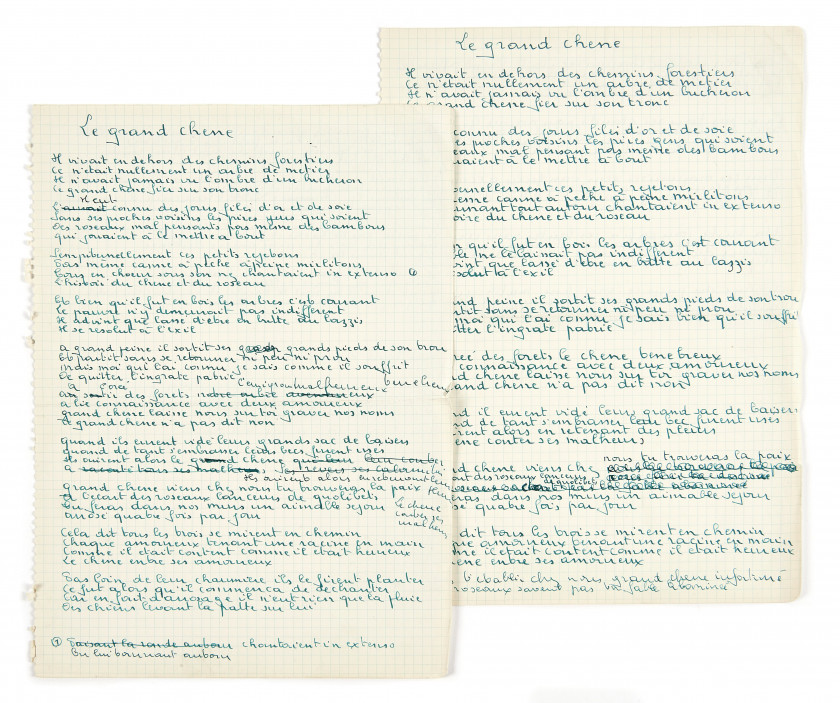 Le grand chene
Il vivait en dehors des chemins forestiers
Ce n'était nullement un arbre de metier
Il n'avait jamais vu l'ombre d'un bucheron
Le grand chene fier sur son tronc
Il eut
connu des jours filés d'or et de soie
Sans ses proches voisins les pires gens qui soient
Des roseaux mal pensants pas meme des bambous
qui jouaient à le mettre a bout
Sempiternellement ces petits rejetons
Pas même canne a peche à peine mirlitons
Tous en choeur sous son nez chantaient in extenso (1)
L'histoire du chene et du roseau
Et bien qu'il fut en bois les arbres c'est courant
Le pauvre n'y demeurait pas indifferent
Il advint que lassé d'etre en butte au lazzis
Il se resolut à l'exil
A grand peine il sortit ses grands pieds de son trou
Et partit sans se retourner ni peu ni prou
mais moi qui l'ai connu je sais comme il souffrit
De quitter l'ingrate patrie
a l'oree
des forets
a lié connaissance avec deux amoureux
grand chene laisse nous sur toi graver nos noms
Le grand chene n'a pas dit non
Quand ils eurent vidé leurs grands sac de baisers
quand de tant s'embrasser leurs becs furent usés
Ils ouirent alors
le chene
conter ses
malheurs
grand chene viens chez nous tu trouveras la paix
A l'ecart des roseaux lanceurs de quolibets
Tu feras dans nos murs un aimable sejour
arrosé quatre fois par jour
Cela dit tous les trois se mirent en chemin
Chaque amoureux tenant une racine en main
Comme il était content comme il etait heureux
Le chene entre ses amoureux
Pas loin de leur chaumiere ils le firent planter
Ce fut alors qu'il commença de dechanter
Car en fait d'arrosage il n'eut rien que la pluie
Des chiens levant la patte sur lui
(1) Faisant la ronde autour chantaient in extenso
En lui tournant autour
Le grand chene
Il vivait en dehors des chemins forestiers
Ce n'était nullement un arbre de metier
Il n'avait jamais vu l'ombre d'un bucheron
Le grand chene fier sur son tronc
connu des jours filés d'or et de soie
ses proches voisins les pires gens qui soient
mal pensant pas meme des bambous
à le mettre a bout
ces petits rejetons
canne à peche à peine mirlitons
tout autour chantaient in extenso
du chene et du roseau
qu'il fut en bois les arbres c'est courant
ne le laissait pas indifferent
que lassé d'etre en butte au lazzis
à l'exil
peine il sortit ses grands pieds de son trou
sans se retourner ni peu ni prou
moi qui l'ai connu je sais bien qu'il souffrit
l'ingrate patrie
des forets le chene tenebreux
connaissance avec deux amoureux
chene laisse nous sur toi graver nos noms
chene n'a pas dit non
il eurent vidé leurs grand sac de baisers
de tant s'embrasser leurs bec furent usés
alors en retenant des pleurs
conter ses malheurs
chene viens chez nous tu trouveras la paix
des roseaux lanceurs de quolibets
dans nos murs un aimable sejour
quatre fois par jour
dit tous les trois se mirent en chemin
amoureux tenant une racine en main
il etait content comme il etait heureux
entre ses amoureux
t'etablir chez nous, grand chene infortuné
roseaux savent pas